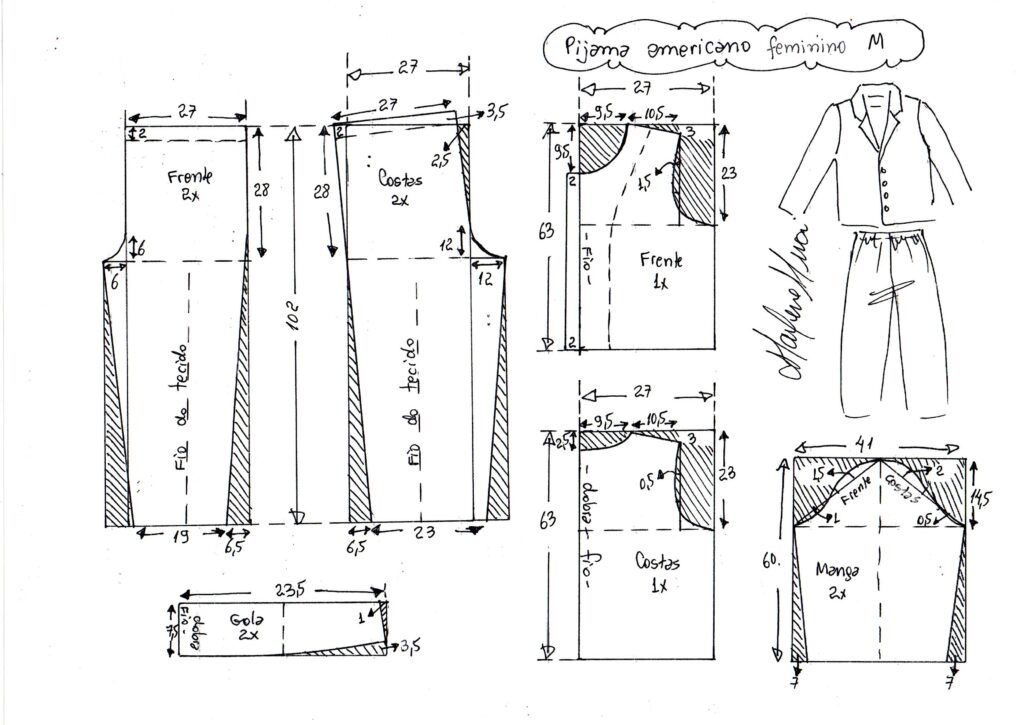 Pijama americano feminino M
27
27
27
3,5
2
28
Frente
2x
6
6
102
Fio do tecido
19
6,5
2
2,5
28
Costas
2x
12
12
Fio do tecido
6,5
23
27
9,5
10,5
9,5
3
2
1,5
23
63
- Fio -
Frente
1x
2
27
9,5
10,5
2,5
3
0,5
23
63
dobra + fio -
Costas
1x
41
1,5
2
Frente
Costas
14,5
1
0,5
60
Manga
2x
7
7
23,5
7,5
Fio -
dobra
Gola
2x
1
3,5